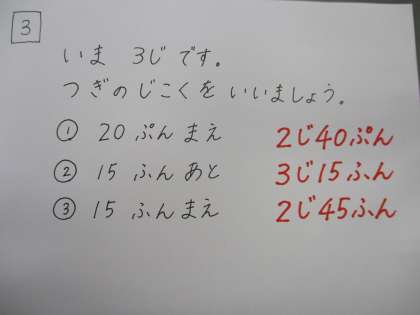 3
いま 3じ です。
つぎの じこく を いいましょう。
① 20 ぷん まえ 2じ40ぷん
② 15 ふん あと 3じ15ふん
③ 15 ふん まえ 2じ45ふん